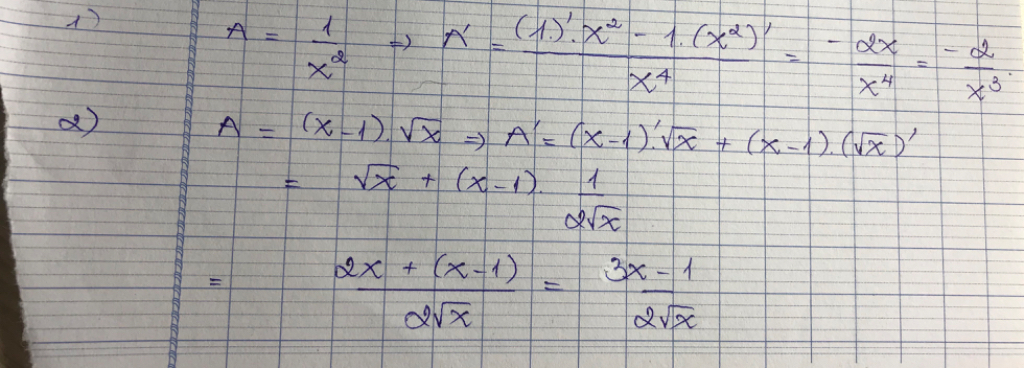 1) A = 1/x² => A' = ((1.)'.x² - 1.(x²)')/x⁴ = - 2x/x⁴ = - 2/x³.
2) A = (x-1).√x => A' = (x-1)'.√x + (x-1).(√x)'
= √x + (x-1). 1/2√x
= (2x + (x-1))/2√x = (3x - 1)/2√x